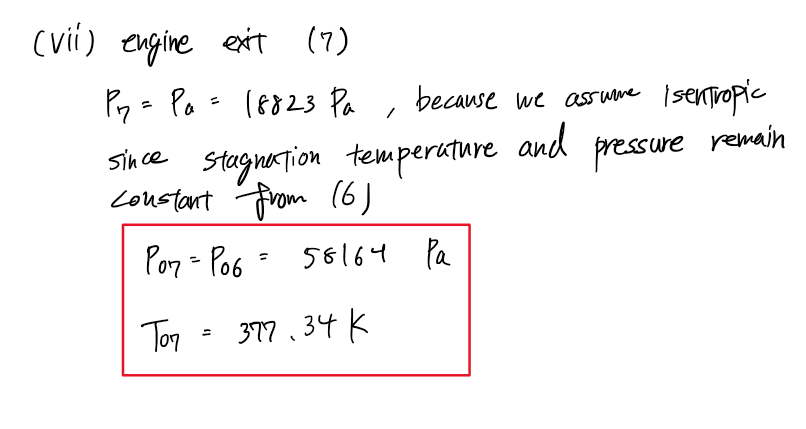 (vii) engine exit (7)
P7 = Pa = 18823 Pa , because we assume Isentropic
since stagnation temperature and pressure remain
constant from (6)
P07 = P06 = 58164 Pa
T07 = 377.34 K